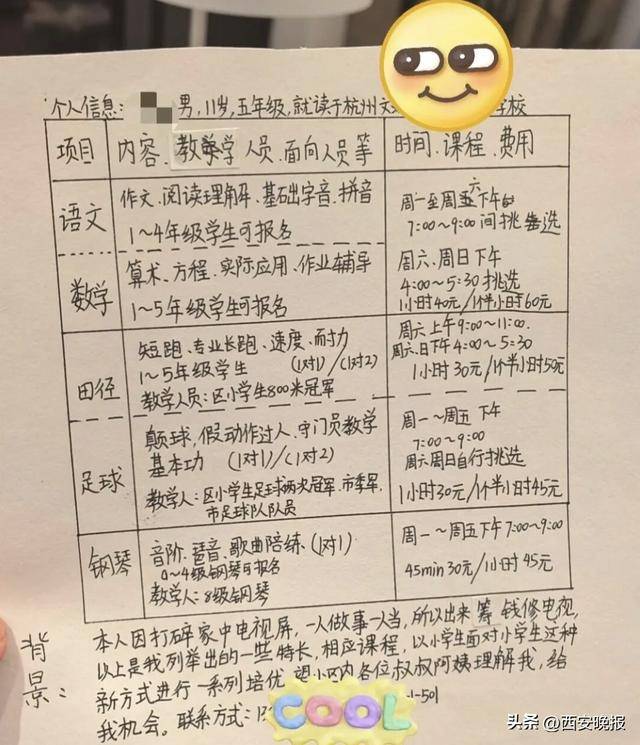 个人信息: 男, 11岁, 五年级, 就读于杭州文 学校
项目
内容、教学人员、面向人员等
时间、课程、费用
语文
作文、阅读理解、基础字音、拼音
1~4年级学生可报名
周一至周五六下午的
7:00~9:00间挑选
数学
算术、方程、实际应用、作业辅导
1~5年级学生可报名
周六、周日下午
4:00~5:30挑选
1小时40元/1个半小时60元
田径
短跑、专业长跑、速度、耐力
1~5年级学生 (1对1)/(1对2)
教学人员:区小学生800米冠军
周六上午9:00~11:00.
周六、日下午4:00~5:30
1小时30元/1个半小时50元
足球
颠球,假动作过人、守门员教学
基本功 (1对1)/(1对2)
教学人:区小学生足球两次冠军、市季军、
市足球队队员
周一~周五下午
7:00~9:00
周六周日自行挑选
1小时30元/1个半小时45元
钢琴
音阶、琶音、歌曲陪练、(1对1)
0~4级钢琴可报名
教学人:8级钢琴
周一~周五下午7:00~9:00
45min 30元/1小时45元
背景:
本人因打碎家中电视屏,一人做事一人当,所以出来筹钱修电视,
以上是我列举出的一些特长,相应课程,以小学生面对小学生这种
新方式进行一系列培优,望小区内各位叔叔阿姨理解我,给
我机会。联系方式:13 -501
COOL
头条 @西安晚报